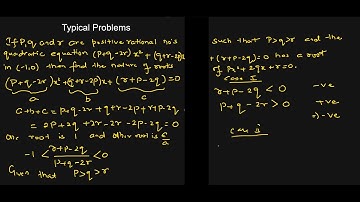 Typical Problems
If P,q and r are positive rational no's such that P>q>r and the
quadratic equation (P+q-2r)x²+(q+r-2p)x+(r+p-2q)=0 has a root
in (-1,0) then find the nature of roots of Px²+2qx+r=0.
(P+q-2r)x²+(q+r-2p)x+(r+p-2q)=0
a b c
a+b+c = p+q-2r+q+r-2p+r+p-2q
= 2p+2q+2r-2r-2p-2q=0
One root is 1 and other root is c/a
-1 < (r+p-2q)/(p+q-2r) < 0
Given that P>q>r
case I
r+p-2q < 0 -ve
p+q-2r > 0 +ve
⇒ -ve
case ii